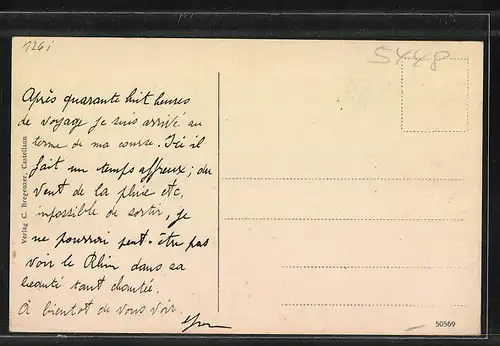 1261
5448
Après quarante huit heures
de voyage je suis arrivé au
terme de ma course. Ici il
fait un temps affreux; du
vent de la pluie etc,
impossible de sortir, je
ne pourrai peut-être pas
voir le Rhin dans sa
beauté tant chantée.
À bientôt de vous voir.
Verlag C. Bregenzer, Castellaun
50569